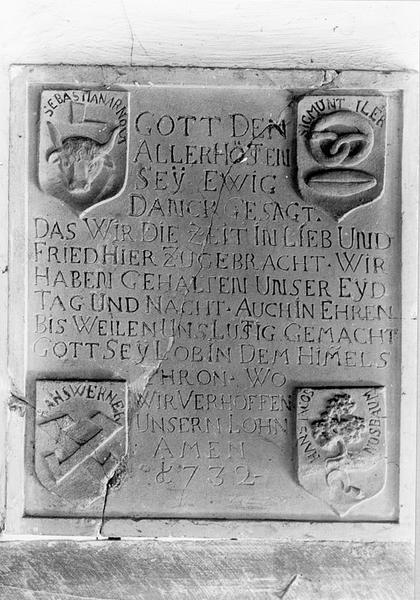 SEBASTIAN ARNOLD
SIGMUNT ILER
GOTT DEN
ALLERHÖSTEN
SEÿ EWIG
DANCK GESAGT.
DAS WIR DIE ZEIT IN LIEB UND
FRIED HIER ZUGEBRACHT. WIR
HABEN GEHALTEN UNSER EŸD
TAG UND NACHT. AUCH IN EHREN
BIS WEILEN UNS LUSTIG GEMACHT
GOTT SEŸ LOB IN DEM HIMELS
HRON. WO
WIR VERHOFFEN
UNSERN LOHN
AMEN
1732
HANS WERNER
HANS GORG
NOSBAUM